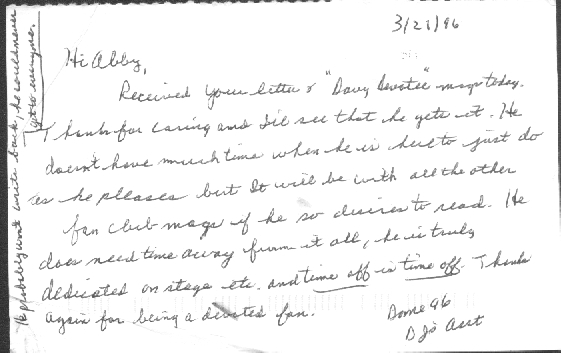 3/21/96
Hi Abby,
Received your letter & "Davy Devotee" mags today.
Thanks for caring and I'll see that he gets it. He
doesn't have much time when he is here to just do
as he pleases but It will be with all the other
fan club mags if he so desires to read. He
does need time away from it all, he is truly
dedicated on stage etc. and time off is time off. Thanks
again for being a devoted fan.
DJ's Asst
He probably won't write back, he could never
get to everyone.